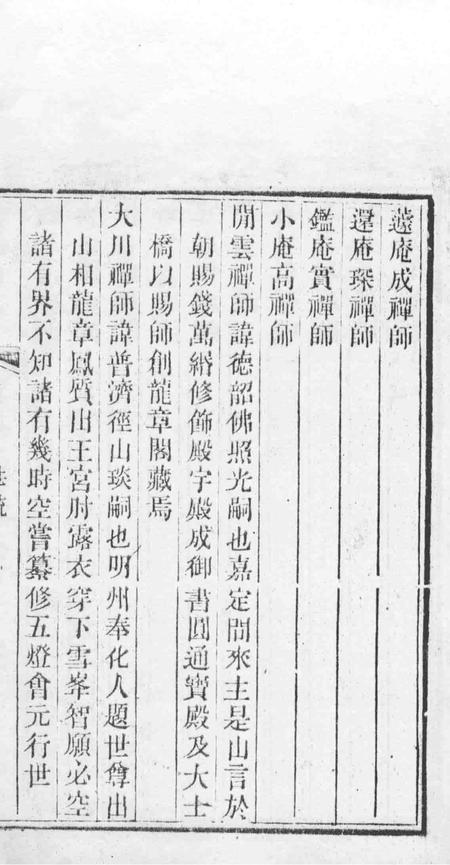 遯庵成禪師
還庵琛禪師
鑑庵實禪師
小庵高禪師
閒雲禪師諱德韶佛照光嗣也嘉定間來主是山言於
朝賜錢萬緡修飾殿宇殿成御書圓通寳殿及大士
橋以賜師創龍章閣藏焉
大川禪師諱普濟徑山琰嗣也明州奉化人題世尊出
山相龍章鳳質出王宮肘露衣穿下雪峯智願必空
諸有界不知諸有幾時空嘗纂修五燈會元行世